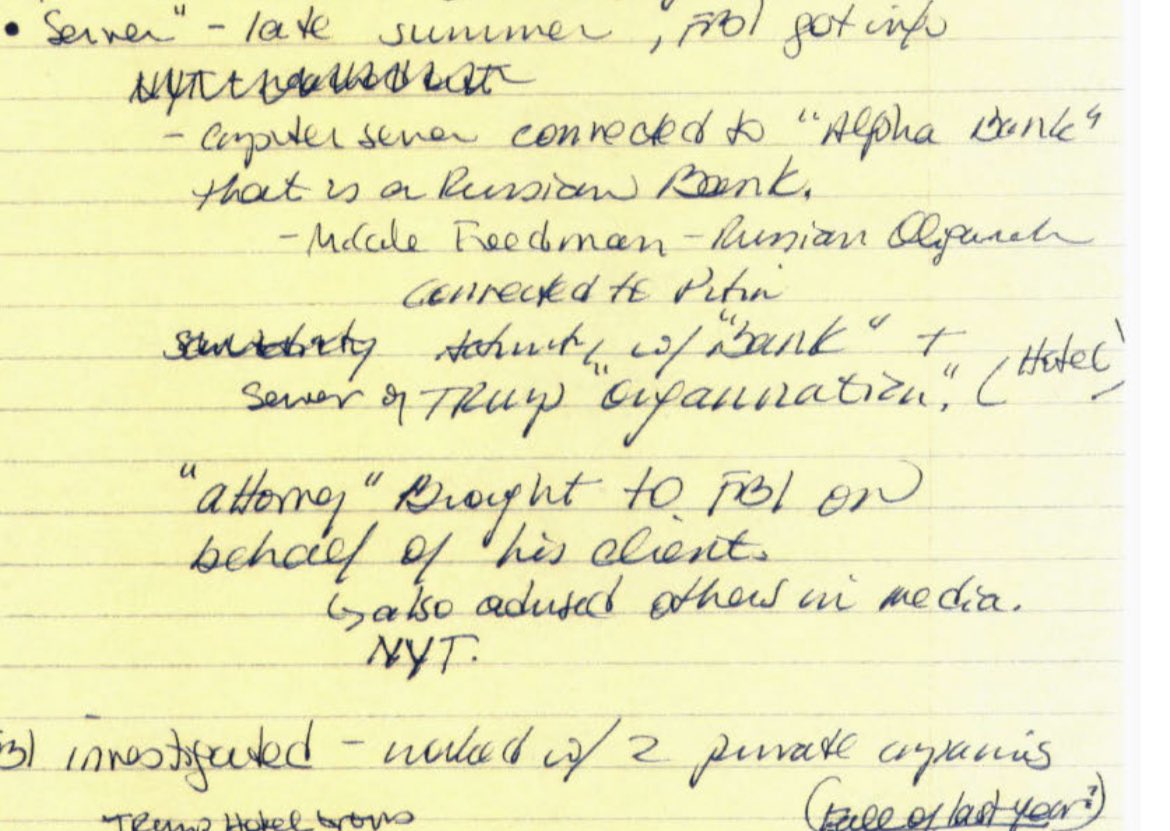 • Server" - late summer, FBI got info
- computer server connected to "Alpha Bank"
that is a Russian Bank.
- Freedman - Russian Oligarch
connected to Putin
activity w/ "Bank" +
Server of TRump "Organization." (Hotel)
"attorney" Brought to FBI on
behalf of his client.
↳ also advised others in media.
NYT.
BI investigated - worked w/ 2 private companies
TRump Hotel (Fall of last year?)